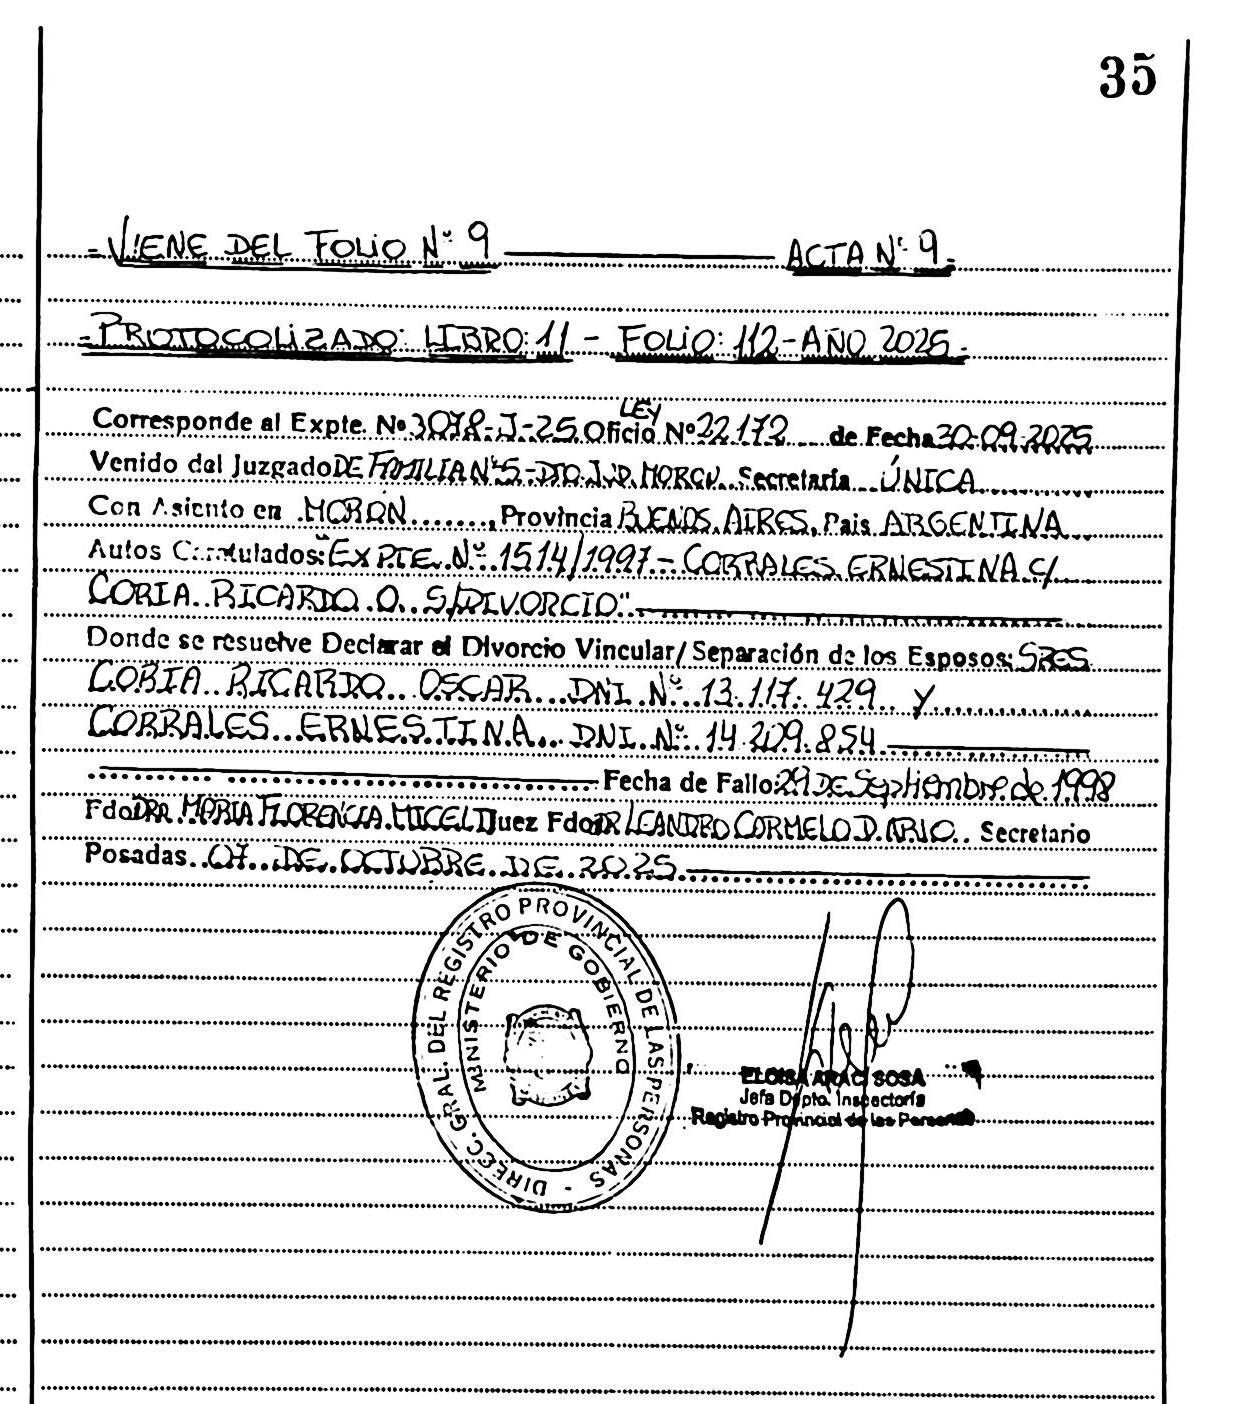 35
=VIENE DEL FOLIO Nº 9 ———— ACTA Nº 9=
=PROTOCOLIZADO: LIBRO: 11 - FOLIO: 112-AÑO 2025.=
LEY
Corresponde al Expte. Nº 3078-J-25 Oficio Nº 22.172 de Fecha 30-09-2025
Venido del Juzgado DE FAMILIA Nº 5 - DTO. J.UD. MORON. Secretaría ÚNICA
Con Asiento en MORON, Provincia BUENOS AIRES, Pais ARGENTINA
Autos Caratulados: "EXPTE. Nº 1514/1997 - CORRALES ERNESTINA C/
CORIA RICARDO O. S/DIVORCIO"
Donde se resuelve Declarar el Divorcio Vincular/ Separación de los Esposos: SRES
CORIA RICARDO OSCAR DNI. Nº 13.117.429 y
CORRALES ERNESTINA DNI. Nº 14.209.854
Fecha de Fallo: 29 DE Septiembre de 1998
Fdo DRA. MARIA FLORENCIA MICELI Juez Fdo DR LEANDRO CORMELO D.ARIO Secretario
Posadas 07 DE OCTUBRE DE 2025
DIRECC. GRAL. DEL REGISTRO PROVINCIAL DE LAS PERSONAS -
MINISTERIO DE GOBIERNO
ELOISA ARACI SOSA
Jefa Dpto. Inspectoría
Registro Provincial de las Personas